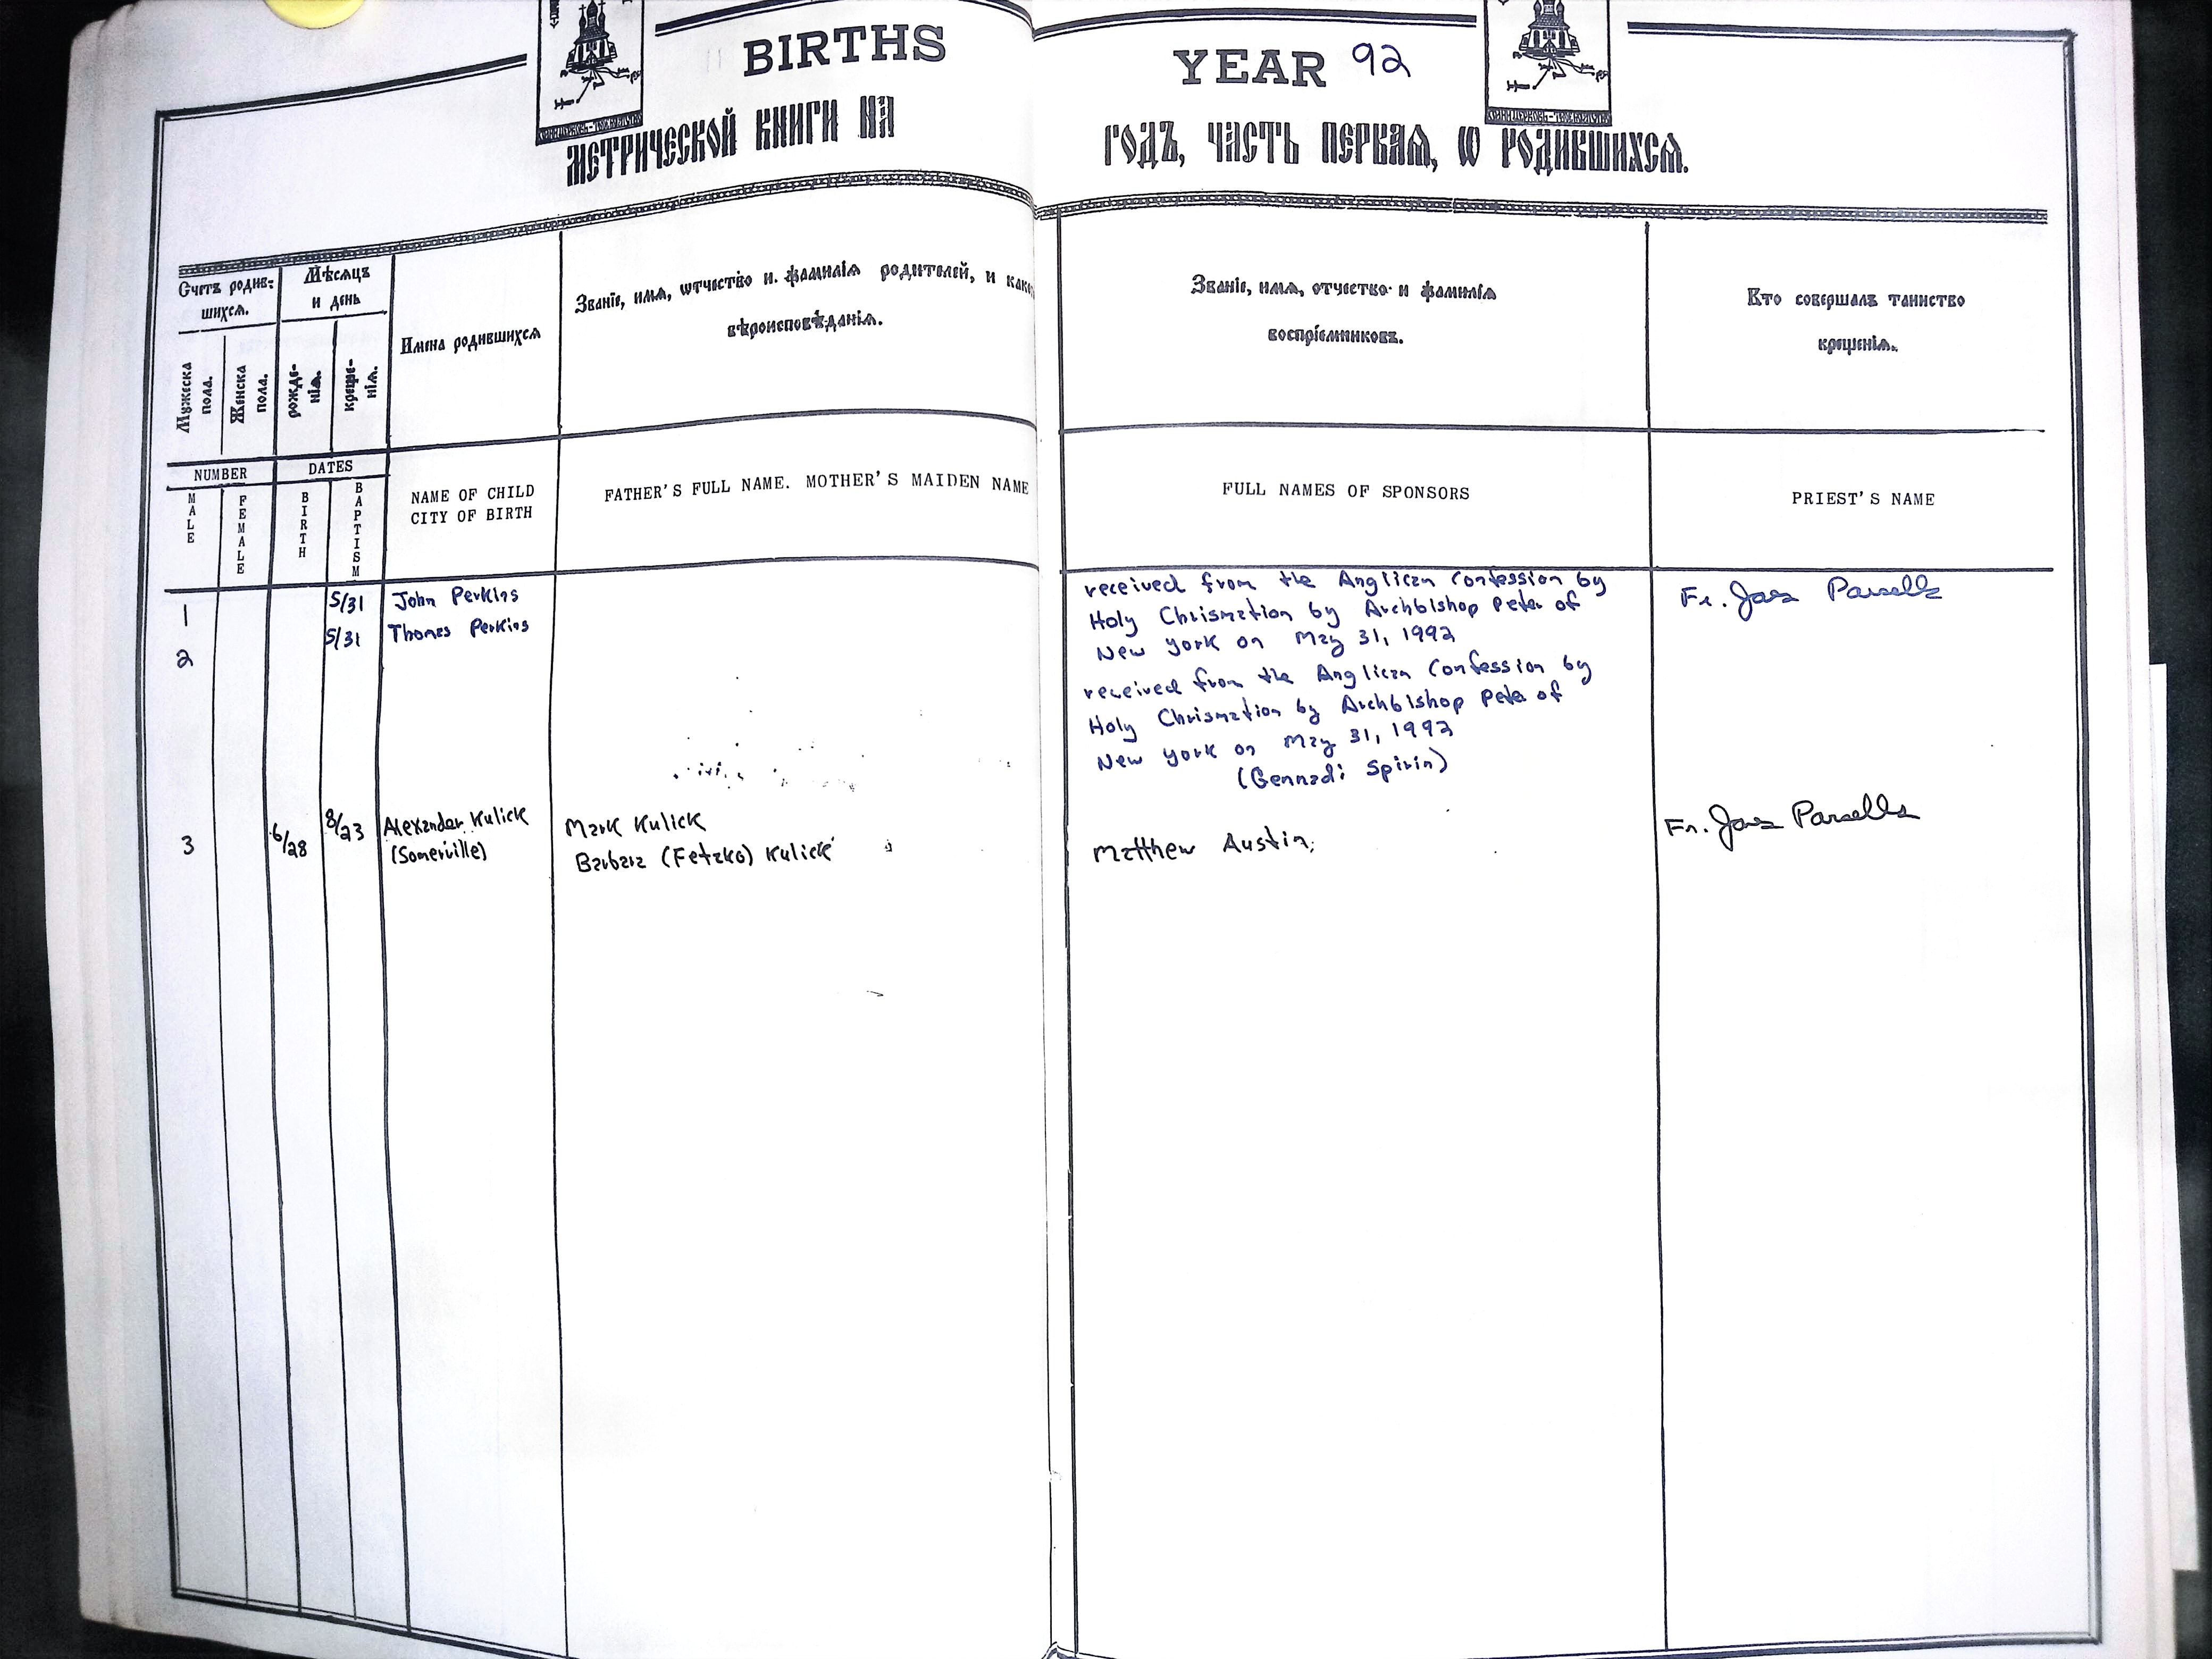 BIRTHS
YEAR 92
МЕТРИЧЕСКОЙ КНИГИ НА
ГОДЪ, ЧАСТЬ ПЕРВАѦ, Ѡ РОДИВШИХСѦ.
Счетъ родив-
шихсѧ.
Мѣсѧцъ
и день
Мужеска
пола.
Женска
пола.
рожде-
ніѧ.
креще-
ніѧ.
Имена родившихсѧ
Званіе, имѧ, ѿчество и. фамиліѧ родителей, и како
вѣроисповѣданіѧ.
Званіе, имѧ, отчество и фамиліѧ
воспріемниковъ.
Кто совершалъ таинство
крещеніѧ.
NUMBER
DATES
MALE
FEMALE
BIRTH
BAPTISM
NAME OF CHILD
CITY OF BIRTH
FATHER'S FULL NAME. MOTHER'S MAIDEN NAME
FULL NAMES OF SPONSORS
PRIEST'S NAME
1 5/31 John Perkins
2 5/31 Thomas Perkins
received from the Anglican Confession by
Holy Chrismation by Archbishop Peter of
New York on May 31, 1992
Fr. James Parsells
received from the Anglican Confession by
Holy Chrismation by Archbishop Peter of
New York on May 31, 1992
(Gennadi Spirin)
3 6/28 8/23 Alexander Kulick
(Somerville)
Mark Kulick
Barbara (Fetzko) Kulick
Matthew Austin,
Fr. James Parsells